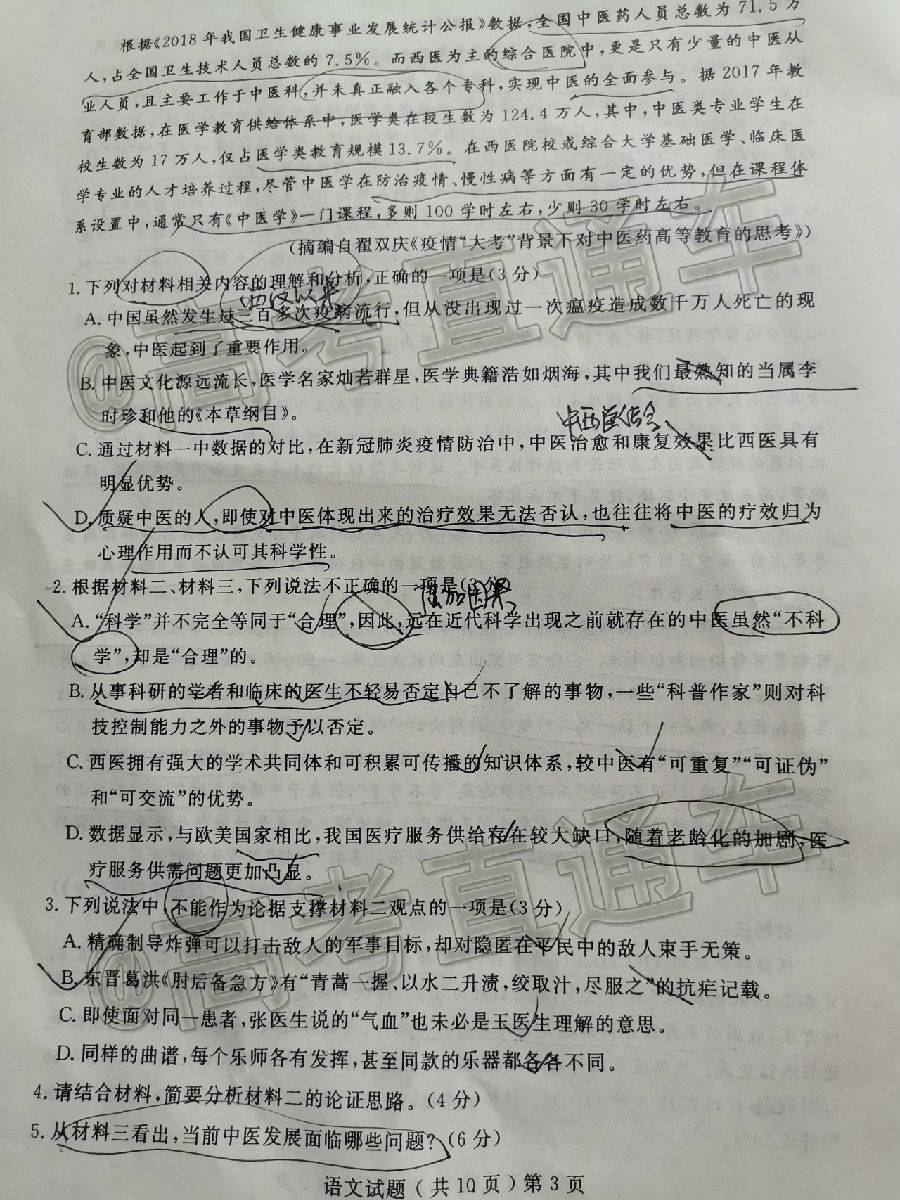 根据《2018年我国卫生健康事业发展统计公报》数据,全国中医药人员总数为71.5万
人,占全国卫生技术人员总数的7.5%。而西医为主的综合医院中,更是只有少量的中医从
业人员,且主要工作于中医科,并未真正融入各个专科,实现中医的全面参与。据2017年教
育部数据,在医学教育供给体系中,医学类在校生数为124.4万人,其中,中医类专业学生在
校生数为17万人,仅占医学类教育规模13.7%。在西医院校或综合大学基础医学、临床医
学专业的人才培养过程,尽管中医学在防治疫情、慢性病等方面有一定的优势,但在课程体
系设置中,通常只有《中医学》一门课程,多则100学时左右,少则30学时左右。
(摘编自翟双庆《疫情“大考”背景下对中医药高等教育的思考》)
1.下列对材料相关内容的理解和分析,正确的一项是(3分)
西汉以来
A.中国虽然发生过三百多次疫病流行,但从没出现过一次瘟疫造成数千万人死亡的现
象,中医起到了重要作用。
B.中医文化源远流长,医学名家灿若群星,医学典籍浩如烟海,其中我们最熟知的当属李
时珍和他的《本草纲目》。
中西医结合
C.通过材料一中数据的对比,在新冠肺炎疫情防治中,中医治愈和康复效果比西医具有
明显优势。
D.质疑中医的人,即使对中医体现出来的治疗效果无法否认,也往往将中医的疗效归为
心理作用而不认可其科学性。
2.根据材料二、材料三,下列说法不正确的一项是(3分)
强加因果
A.“科学”并不完全等同于“合理”,因此,远在近代科学出现之前就存在的中医虽然“不科
学”,却是“合理”的。
B.从事科研的学者和临床的医生不轻易否定自己不了解的事物,一些“科普作家”则对科
技控制能力之外的事物予以否定。
C.西医拥有强大的学术共同体和可积累可传播的知识体系,较中医有“可重复”“可证伪”
和“可交流”的优势。
D.数据显示,与欧美国家相比,我国医疗服务供给存在较大缺口,随着老龄化的加剧,医
疗服务供需问题更加凸显。
3.下列说法中,不能作为论据支撑材料二观点的一项是(3分)
A.精确制导炸弹可以打击敌人的军事目标,却对隐匿在平民中的敌人束手无策。
B.东晋葛洪《肘后备急方》有“青蒿一握,以水二升渍,绞取汁,尽服之”的抗疟记载。
C.即使面对同一患者,张医生说的“气血”也未必是王医生理解的意思。
D.同样的曲谱,每个乐师各有发挥,甚至同款的乐器都各各不同。
4.请结合材料,简要分析材料二的论证思路。(4分)
5.从材料三看出,当前中医发展面临哪些问题?(6分)
语文试题(共10页)第3页
@高考直通车
@高考直通车